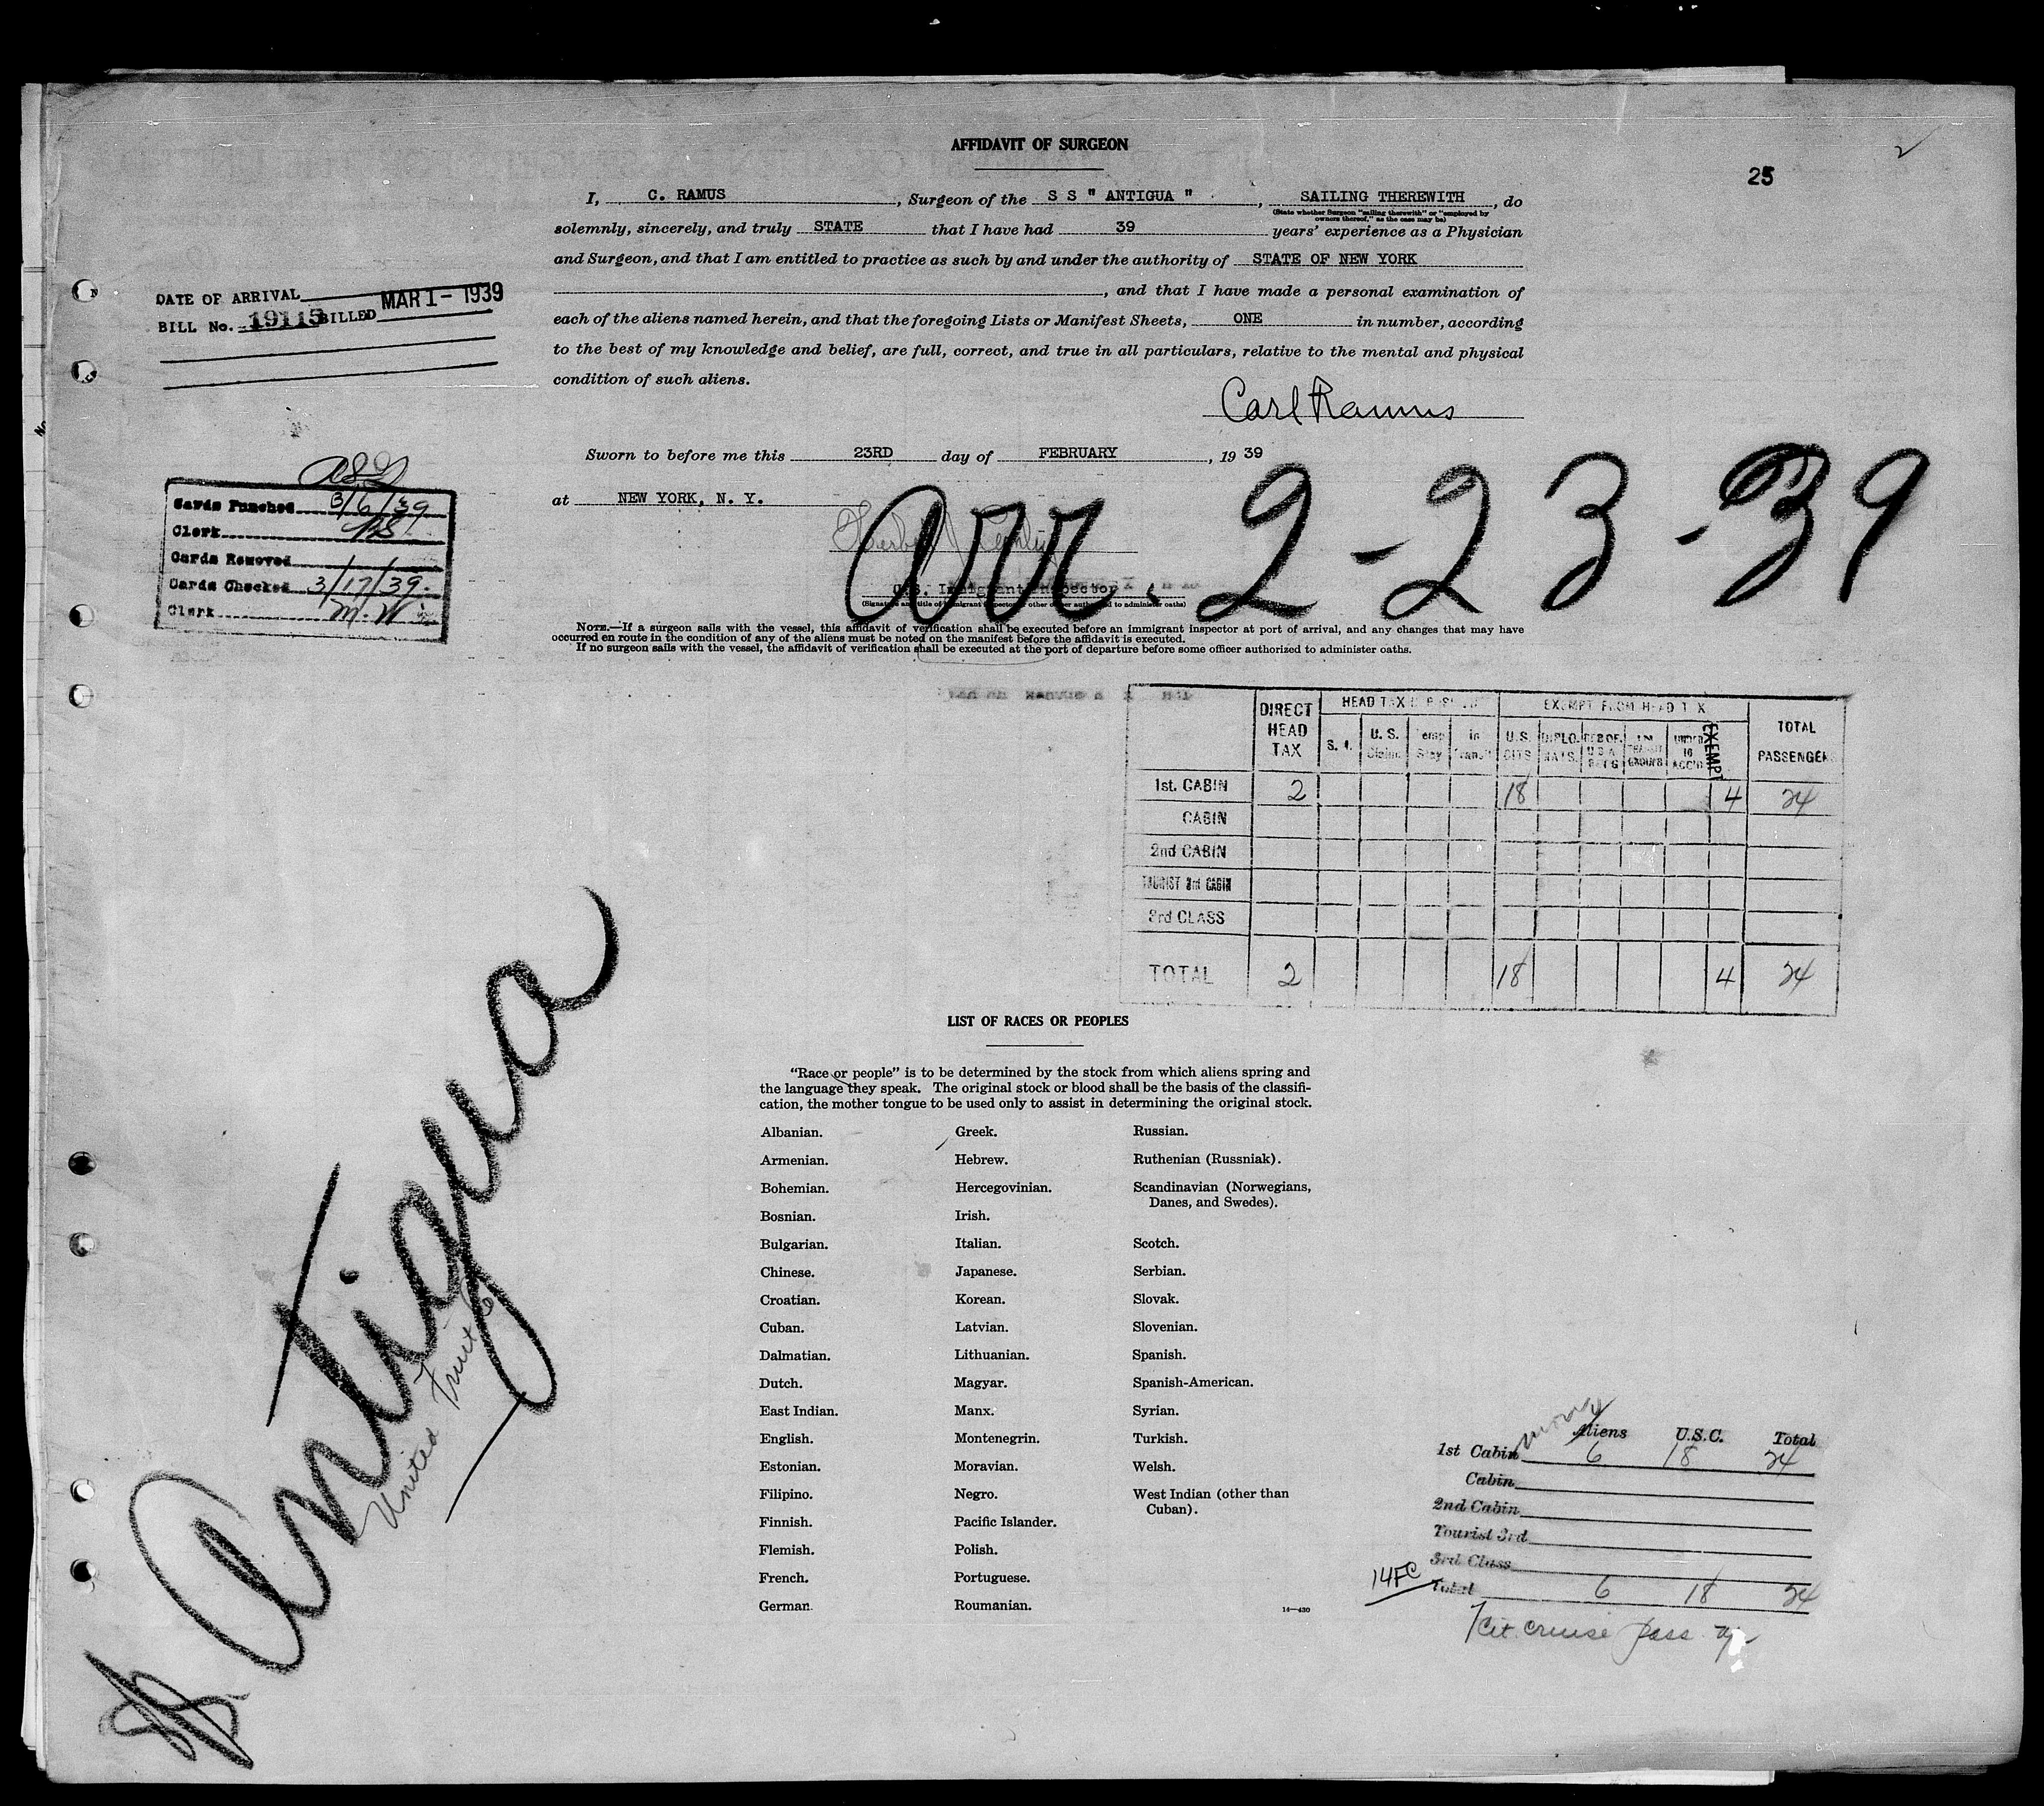 AFFIDAVIT OF SURGEON
25
I, C. RAMUS, Surgeon of the S S " ANTIGUA ", SAILING THEREWITH, do
(State whether Surgeon "sailing therewith" or "employed by
owners thereof," as the case may be)
solemnly, sincerely, and truly STATE that I have had 39 years' experience as a Physician
and Surgeon, and that I am entitled to practice as such by and under the authority of STATE OF NEW YORK
, and that I have made a personal examination of
each of the aliens named herein, and that the foregoing Lists or Manifest Sheets, ONE in number, according
to the best of my knowledge and belief, are full, correct, and true in all particulars, relative to the mental and physical
condition of such aliens.
Carl Ramus
Sworn to before me this 23RD day of FEBRUARY, 19 39
at NEW YORK, N. Y.
Arr. 2-23-39
U.S. Immigrant Inspector
(Signature and title of immigrant inspector or other officer authorized to administer oaths)
NOTE.—If a surgeon sails with the vessel, this affidavit of verification shall be executed before an immigrant inspector at port of arrival, and any changes that may have
occurred en route in the condition of any of the aliens must be noted on the manifest before the affidavit is executed.
If no surgeon sails with the vessel, the affidavit of verification shall be executed at the port of departure before some officer authorized to administer oaths.
DATE OF ARRIVAL
BILL No. 19115 BILLED MAR 1 - 1939
Cards Punched 3/6/39
Clerk
Cards Removed
Cards Checked 3/17/39.
Clerk M. W.
DIRECT HEAD TAX
HEAD TAX
EXEMPT FROM HEAD TAX
TOTAL PASSENGERS
U. S. Claim. Temp Stay In Transit U.S. CITS. DIPLOMATS. IN TRANSIT GROUPS UNDER 16 ACC'D EXEMPT
1st. CABIN 2 18 4 24
CABIN
2nd CABIN
TOURIST 3rd CABIN
3rd CLASS
TOTAL 2 18 4 24
LIST OF RACES OR PEOPLES
"Race or people" is to be determined by the stock from which aliens spring and
the language they speak. The original stock or blood shall be the basis of the classifi-
cation, the mother tongue to be used only to assist in determining the original stock.
Albanian.
Armenian.
Bohemian.
Bosnian.
Bulgarian.
Chinese.
Croatian.
Cuban.
Dalmatian.
Dutch.
East Indian.
English.
Estonian.
Filipino.
Finnish.
Flemish.
French.
German.
Greek.
Hebrew.
Hercegovinian.
Irish.
Italian.
Japanese.
Korean.
Latvian.
Lithuanian.
Magyar.
Manx.
Montenegrin.
Moravian.
Negro.
Pacific Islander.
Polish.
Portuguese.
Roumanian.
Russian.
Ruthenian (Russniak).
Scandinavian (Norwegians,
Danes, and Swedes).
Scotch.
Serbian.
Slovak.
Slovenian.
Spanish.
Spanish-American.
Syrian.
Turkish.
Welsh.
West Indian (other than
Cuban).
14—430
SS Antigua
United Fruit Co
Aliens U.S.C. Total
1st Cabin 6 18 24
Cabin
2nd Cabin
Tourist 3rd
3rd Class
14FC
Total 6 18 24
cit. cruise pass.